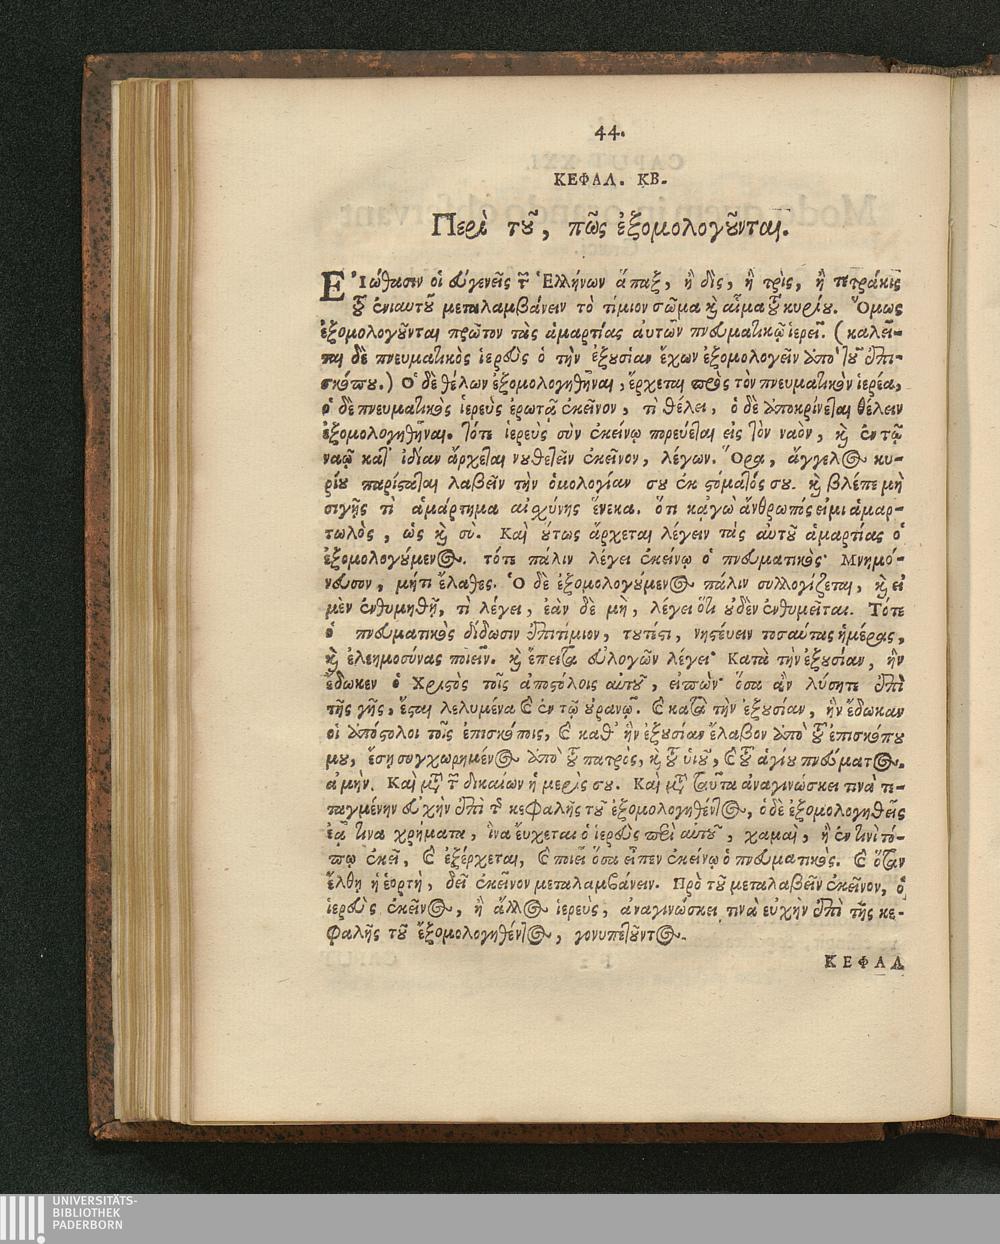 44.
ΚΕΦΑΛ. ΚΒ.
Περὶ τοῦ, πῶς ἐξομολογοῦνται.
Εἰώθασιν οἱ εὐγενεῖς τῶν Ἑλλήνων ἅπαξ, ἢ δὶς, ἢ τρὶς, ἢ τετράκις
τοῦ ἐνιαυτοῦ μεταλαμβάνειν τὸ τίμιον σῶμα καὶ αἷμα τοῦ κυρίου. Ὅμως
ἐξομολογοῦνται πρῶτον τὰς ἁμαρτίας αὐτῶν πνευματικῷ ἱερεῖ. (καλεῖ-
ται δὲ πνευματικὸς ἱερεὺς ὁ τὴν ἐξουσίαν ἔχων ἐξομολογεῖν ἀπὸ τοῦ ἐπι-
σκόπου.) Ὁ δὲ θέλων ἐξομολογηθῆναι, ἔρχεται πρὸς τὸν πνευματικὸν ἱερέα,
ὁ δὲ πνευματικὸς ἱερεὺς ἐρωτᾷ ἐκεῖνον, τὶ θέλει, ὁ δὲ ἀποκρίνεται θέλειν
ἐξομολογηθῆναι. τότε ἱερεὺς σὺν ἐκείνῳ πορεύεται εἰς τὸν ναὸν, καὶ ἐν τῷ
ναῷ κατ' ἰδίαν ἄρχεται νουθετεῖν ἐκεῖνον, λέγων. Ὅρα, ἄγγελος κυ-
ρίου παρίσταται λαβεῖν τὴν ὁμολογίαν σου ἐκ στόματός σου. καὶ βλέπε μὴ
σιγῇς τὶ ἁμάρτημα αἰσχύνης ἕνεκα. ὅτι κἀγὼ ἄνθρωπός εἰμι ἁμαρ-
τωλὸς, ὡς καὶ σύ. Καὶ οὕτως ἄρχεται λέγειν τὰς αὐτοῦ ἁμαρτίας ὁ
ἐξομολογούμενος. τότε πάλιν λέγει ἐκείνῳ ὁ πνευματικὸς· Μνημό-
νευσον, μήτι ἔλαθες. Ὁ δὲ ἐξομολογούμενος πάλιν συλλογίζεται, καὶ εἰ
μὲν ἐνθυμηθῇ, τὶ λέγει, ἐὰν δὲ μὴ, λέγει ὅτι οὐδὲν ἐνθυμεῖται. Τότε
ὁ πνευματικὸς δίδωσιν ἐπιτίμιον, τουτέστι, νηστεύειν τοσαύτας ἡμέρας,
καὶ ἐλεημοσύνας ποιεῖν. καὶ ἔπειτα εὐλογῶν λέγει· Κατὰ τὴν ἐξουσίαν, ἣν
ἔδωκεν ὁ Χριστὸς τοῖς ἀποστόλοις αὐτοῦ, εἰπὼν· ὅσα ἂν λύσητε ἐπὶ
τῆς γῆς, ἔσται λελυμένα καὶ ἐν τῷ οὐρανῷ. καὶ κατὰ τὴν ἐξουσίαν, ἣν ἔδωκαν
οἱ ἀπόστολοι τοῖς ἐπισκόποις, καὶ καθ' ἣν ἐξουσίαν ἔλαβον ἀπὸ τοῦ ἐπισκόπου
μου, ἔσῃ συγχωρημένος ἀπὸ τοῦ πατρὸς, καὶ τοῦ υἱοῦ, καὶ τοῦ ἁγίου πνεύματος.
ἀμήν. Καὶ μετὰ τῶν δικαίων ἡ μερὶς σου. Καὶ μετὰ ταῦτα ἀναγινώσκει τινὰ τε-
ταγμένην εὐχὴν ἐπὶ τῆς κεφαλῆς τοῦ ἐξομολογηθέντος, ὁ δὲ ἐξομολογηθεὶς
ἐᾷ τινα χρήματα, ἵνα εὔχεται ὁ ἱερεὺς περὶ αὐτοῦ, χαμαὶ, ἢ ἐν τινὶ τό-
πῳ ἐκεῖ, καὶ ἐξέρχεται, καὶ ποιεῖ ὅσα εἶπεν ἐκείνῳ ὁ πνευματικός. καὶ ὅταν
ἔλθῃ ἡ ἑορτὴ, δεῖ ἐκεῖνον μεταλαμβάνειν. Πρὸ τοῦ μεταλαβεῖν ἐκεῖνον, ὁ
ἱερεὺς ἐκεῖνος, ἢ ἄλλος ἱερεὺς, ἀναγινώσκει τινὰ εὐχὴν ἐπὶ τῆς κε-
φαλῆς τοῦ ἐξομολογηθέντος, γονυπετοῦντος.
ΚΕΦΑΛ
UNIVERSITÄTS-
BIBLIOTHEK
PADERBORN